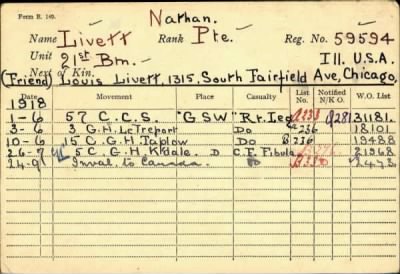 Form B. 140.
Nathan.
Name Livett Rank Pte.- Reg. No. 59594
Unit 21st Bn.- Ill. U.S.A.
Next of Kin.
(Friend) Louis Livett, 1315, South Fairfield Ave, Chicago,
Date Movement Place Casualty List No. Notified N/K O. W.O. List
1918
1-6 57 C.C.S. "GSW" R.t. Leg 31181.
3-6 3 G.H. LeTreport Do 236 18101
10-6 15 C.G.H. Taplow Do B236 19488
26-7 5 C.G.H. K'dale. D C.F. Fibula 21968
24-9 Inval. to Canada. 2473